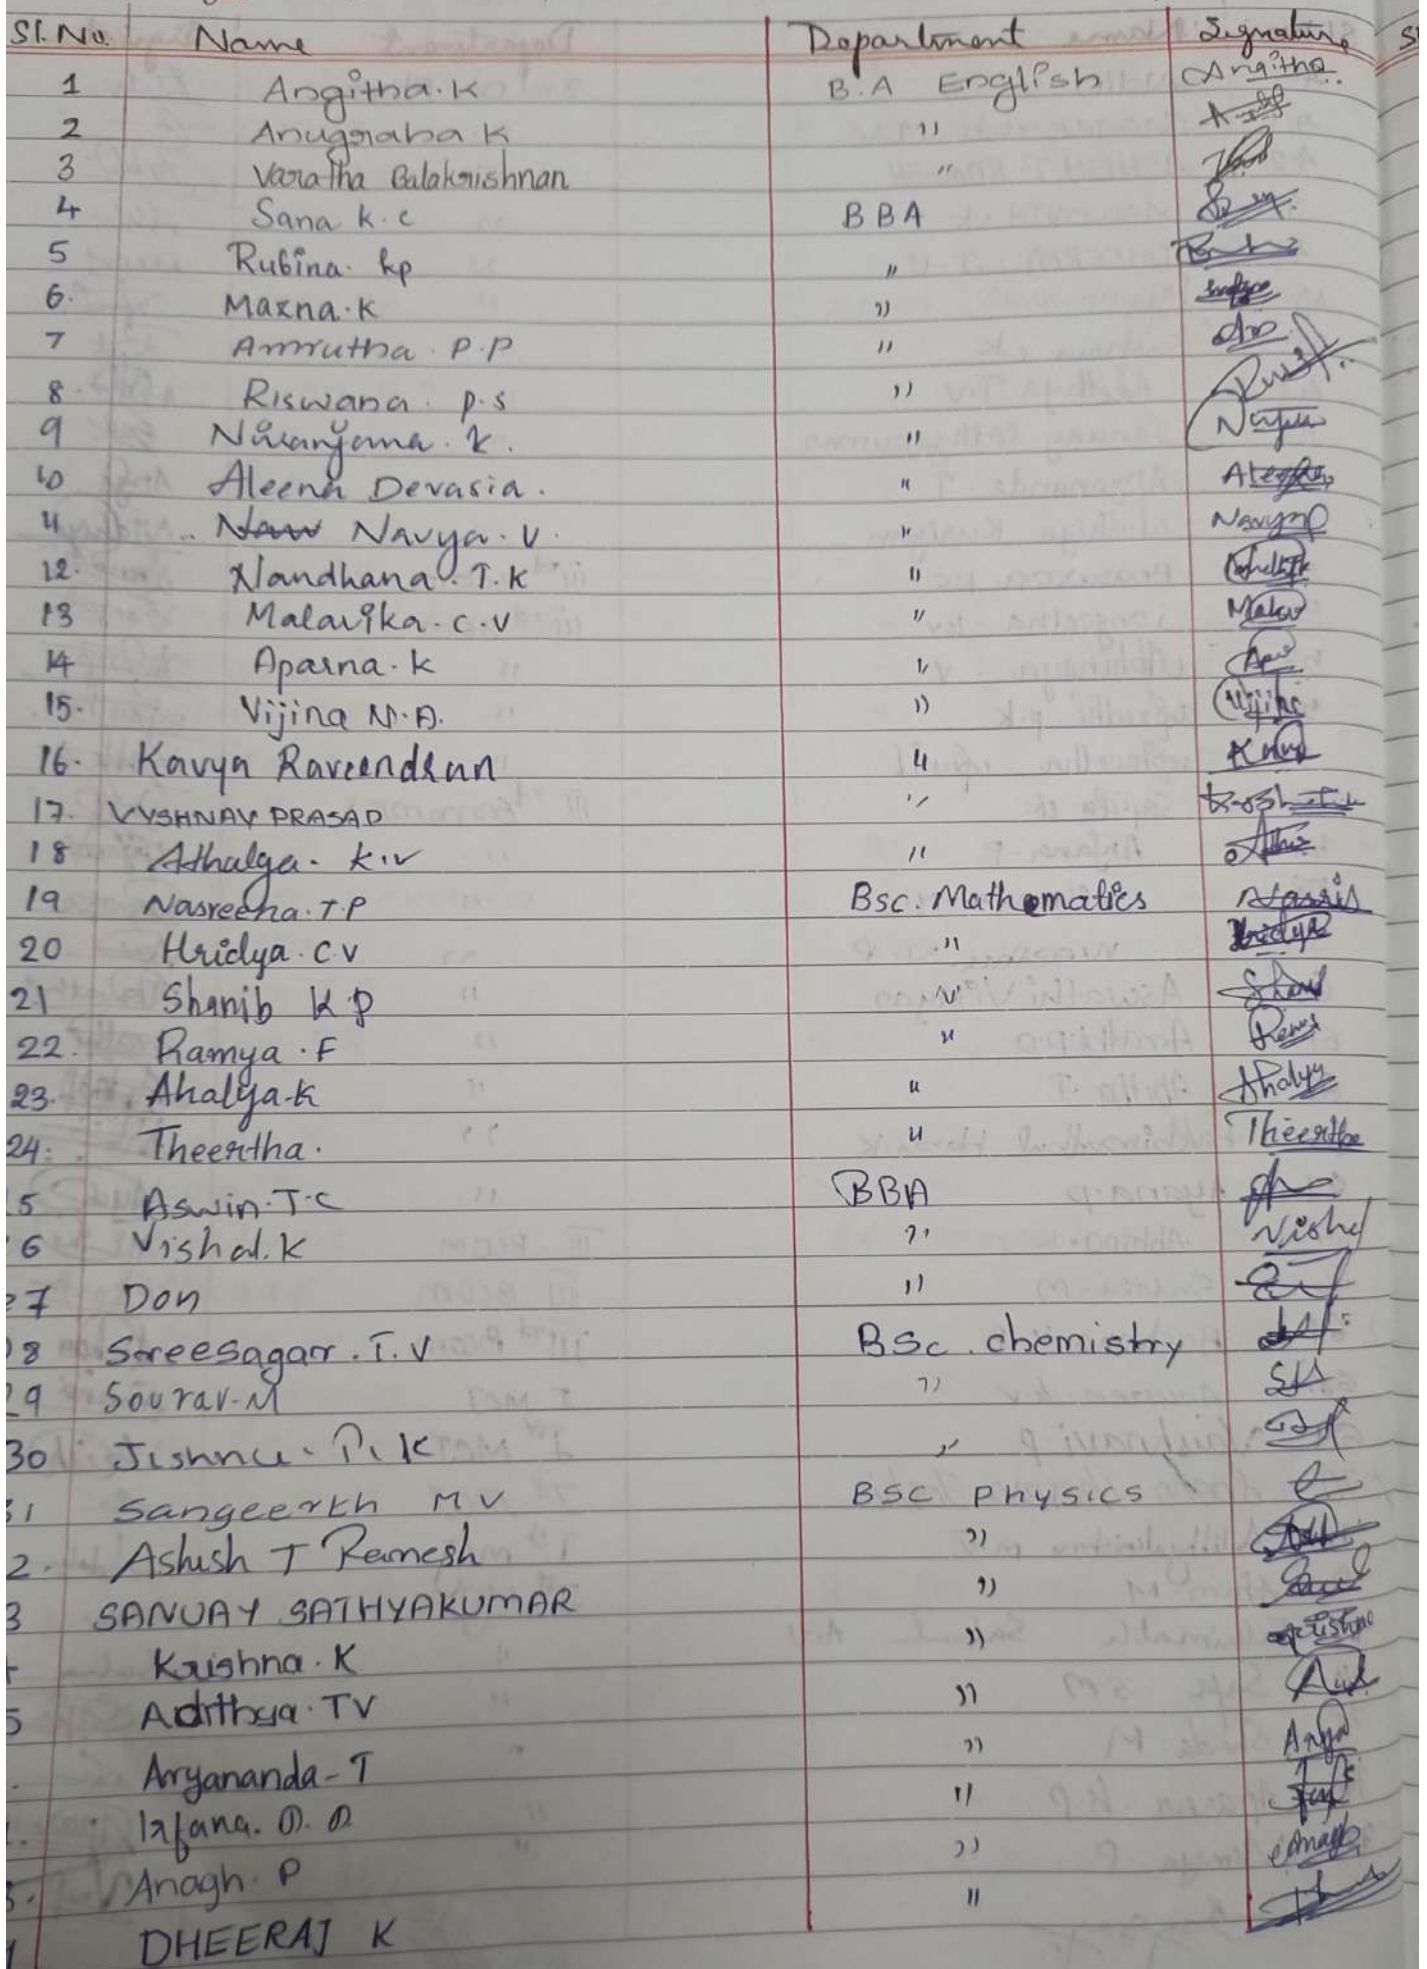 Sl. No. Name Department Signature
1 Angitha.K B.A English Angitha
2 Anugraha K "
3 Varatha Balakrishnan "
4 Sana k.c BBA
5 Rubina. kp "
6. Mazna.K "
7 Amrutha. P.P "
8. Riswana. p.s "
9 Niranjana. K. "
10 Aleena Devasia. "
11 Navya. V. "
12. Nandhana. T.K "
13 Malavika. C.V "
14 Aparna. K "
15. Vijina N.A. "
16. Kavya Raveendran "
17. VYSHNAV PRASAD "
18 Athalya. K.V "
19 Nasreena. T.P Bsc. Mathematics
20 Hridya. C.V "
21 Shanib K P "
22. Ramya. F "
23. Ahalya.k " Ahalya
24. Theertha. " Theertha
5 Aswin.T.C BBA
6 Vishal.K " Vishal
27 Don "
28 Sreesagar. T.V BSc. chemistry
29 Sourav.M "
30 Jishnu. P.K "
31 Sangeerth M V BSC PHYSICS
2. Ashish T Ramesh "
3 SANJAY SATHYAKUMAR "
Krishna. K " Krishna
5 Adithya. TV "
Aryananda-T "
Irfana. "
Anagh. P " Anagh
DHEERAJ K "